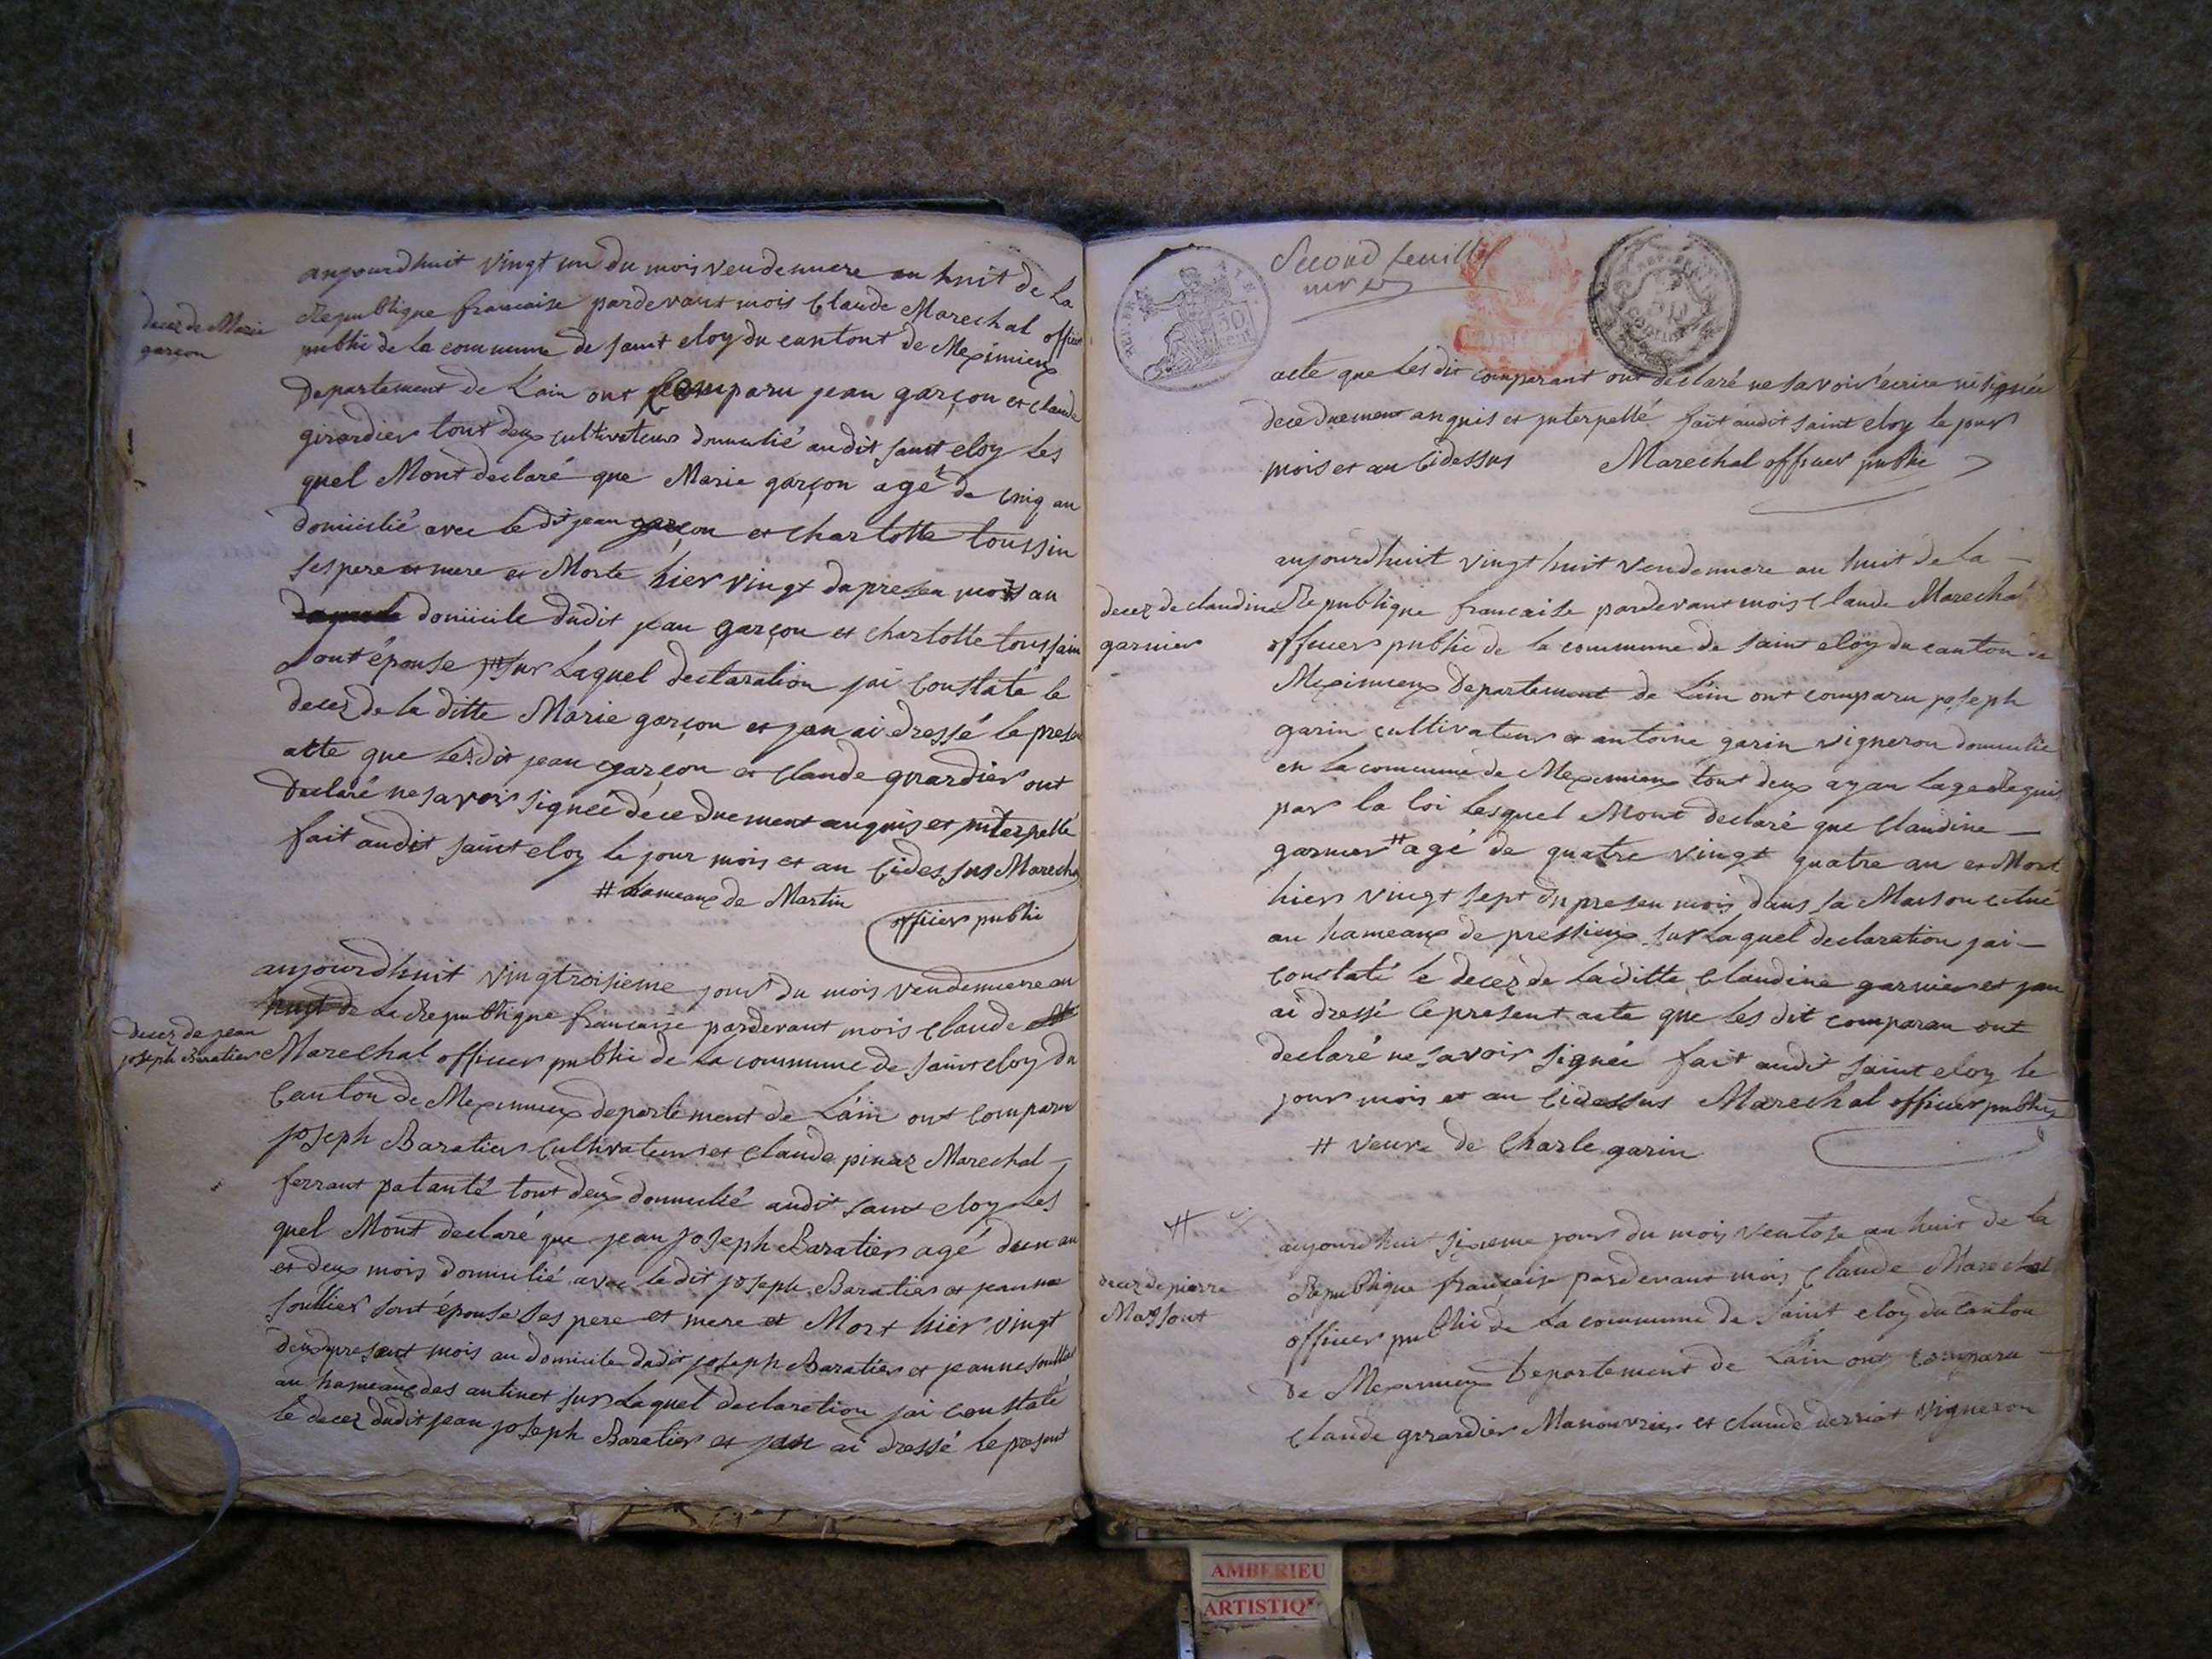 decez de Marie
garçon
aujourdhuit vingt un du mois vendemiere an huit de la
Republique francaise pardevant mois Claude Marechal officier
publici de la commune de saint eloy du cantont de Meximieux
Departement de Lain ont comparu jean garçon et claude
girardier tout deux cultivateur domicilié audit saint eloy les
quel Mont declaré que Marie garçon agé de cinq an
domicilié avec le dit jean garçon et Charlotte toussin
ses pere et mere et Morte hier vingt du presen mois au
domicile dudit jean garçon et charlotte toussain
sont épouse # sur Laquel declaration jai constaté le
decez de la ditte Marie garçon et jan ai dressé le presen
atte que lesdit jean garçon et Claude girardier ont
declaré ne savoir signée de ce duement anquis et interpellé
fait audit saint eloy le jour mois et an cidessus Marechal
# hameaux de Martin
officier publici
decez de jean
joseph Baratier
aujourdhuit vingtroisieme jour du mois vendemiere an
huit de La Republique francaise pardevant mois Claude
Marechal officier publici de La commune de saint eloy du
Canton de Meximieux departement de Lain ont comparu
joseph Baratier Cultivateur et Claude pinaz Marechal
ferrant patanté tout deux domicilié audit saint eloy Les
quel Mont declaré que jean joseph Baratier agé dun an
et deux mois domicilié avec le dit joseph Baratier et jeanne
soullier sont épouse ses pere et mere et Mort hier vingt
deux present mois au domicile dudit joseph Baratier et jeanne soullier
au hameaux des antinet sur Laquel declaration jai constaté
le decez dudit jean joseph Baratier et jan ai dressé le present
Second feuille
REP. FRA.
50
acte que les dit comparant ont declaré ne savoir écrire ni signée
de ce duement anquis et interpellé fait audit saint eloy le jour
mois et an cidessus Marechal officier publici
decez de claudine
garnier
aujourdhuit vingt huit vendemiere an huit de la
Republique francaise pardevant mois Claude Marechal
officier publici de la commune de saint eloy du canton de
Meximieux Departement de Lain ont comparu joseph
garin cultivateur et antoine garin vigneron domicilié
en la commune de Meximieux tout deux ayan lage requis
par la loi lesquel Mont declaré que Claudine
garnier # agé de quatre vingt quatre an et Mort
hier vingt sept du presen mois dans sa Maison citué
au hameaux de pressieux sur Laquel declaration jai
constaté le decez de laditte Claudine garnier et jan
ai dressé le present acte que les dit comparan ont
declaré ne savoir signée fait audit saint eloy le
jour mois et an cidessus Marechal officier publici
# veuve de Charle garin
#
decez de pierre
Massont
aujourdhuit sixieme jour du mois ventose an huit de la
Republique francaise pardevant mois Claude Marechal
officier publici de La commune de saint eloy du Canton
de Meximieux Departement de Lain ont comparu
Claude girardier Manouvrier et claude derriat vigneron
AMBERIEU
ARTISTIQ